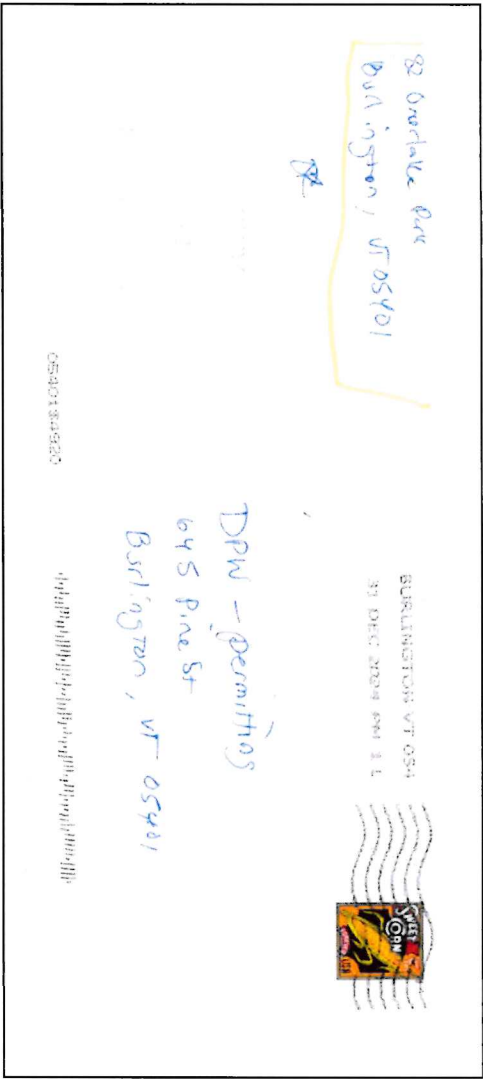 82 Overlake Park
Burlington, VT 05401
BURLINGTON VT 054
31 DEC 2024 PM 1 L
SWEET
CORN
DPW - permitting
645 Pine St
Burlington, VT 05401